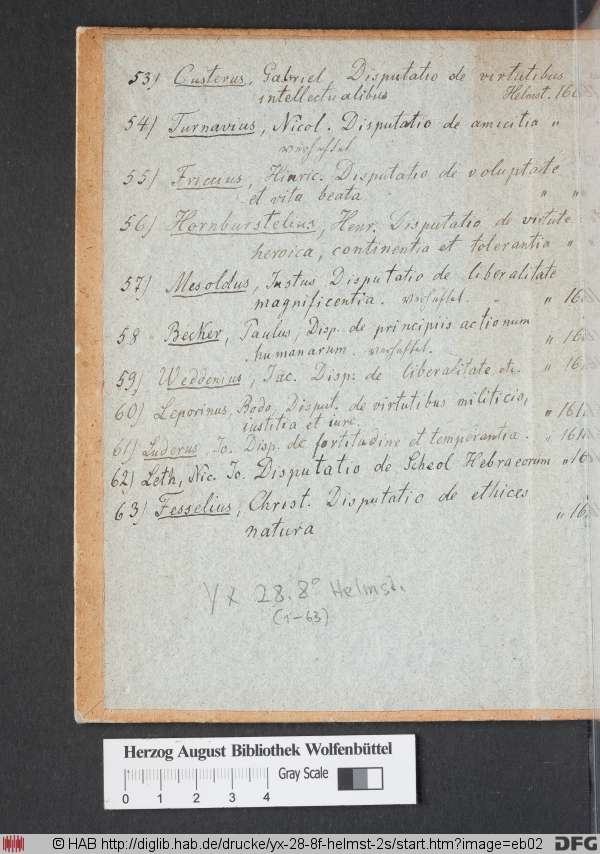 53) Custerus, Gabriel, Disputatio de virtutibus
intellectualibus Helmst. 16
54) Turnavius, Nicol. Disputatio de amicitia "
verheftet
55) Friccius, Hinric. Disputatio de voluptate
et vita beata " "
56) Hornburstelius, Henr. Disputatio de virtute
heroica, continentia et tolerantia "
57) Mesoldus, Justus Disputatio de liberalitate
magnificentia. verheftet. " 16
58 Becker, Paulus, Disp. de principiis actionum
humanarum. verheftet. " 16
59) Weddenius, Jac. Disp. de liberalitate etc. " 16
60) Leporinus, Bodo, Disput. de virtutibus militicis,
iustitia et iure. " 161
61) Luderus, Jo. Disp. de fortitudine et temperantia. " 161
62) Leth, Nic. Jo. Disputatio de Scheol Hebraeorum " 16
63) Fesselius, Christ. Disputatio de ethices
natura " 16
Yx 28.8° Helmst.
(1-63)
Herzog August Bibliothek Wolfenbüttel
cm Gray Scale
0 1 2 3 4
© HAB http://diglib.hab.de/drucke/yx-28-8f-helmst-2s/start.htm?image=eb02 DFG